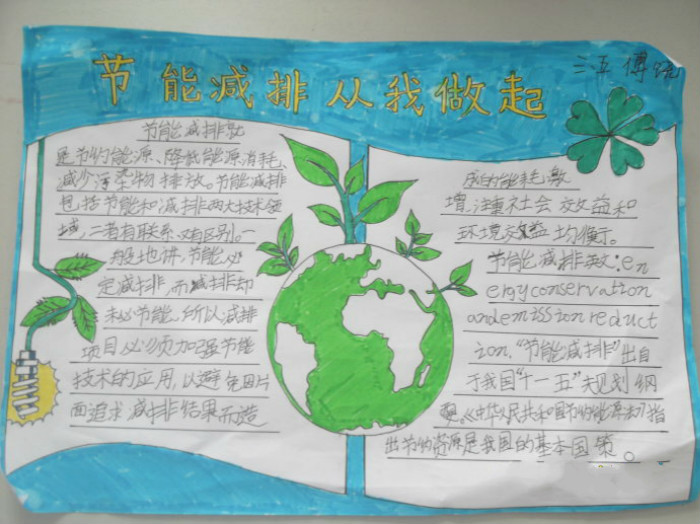 节能减排从我做起
三五 傅
节能减排就
是节约能源、降低能源消耗、
减少污染物排放。节能减排
包括节能和减排两大技术领
域,二者有联系,又有区别。一
般地讲,节能必
定减排,而减排却
未必节能,所以减排
项目必须加强节能
技术的应用,以避免因片
面追求减排结果而造
成的能耗激
增,注重社会效益和
环境效益均衡。
节能减排英文:en
ergyconservation
andemissionreduct
ion.“节能减排”出自
于我国“十一五”规划纲
要。《中华人民共和国节约能源法》指
出节约资源是我国的基本国策。